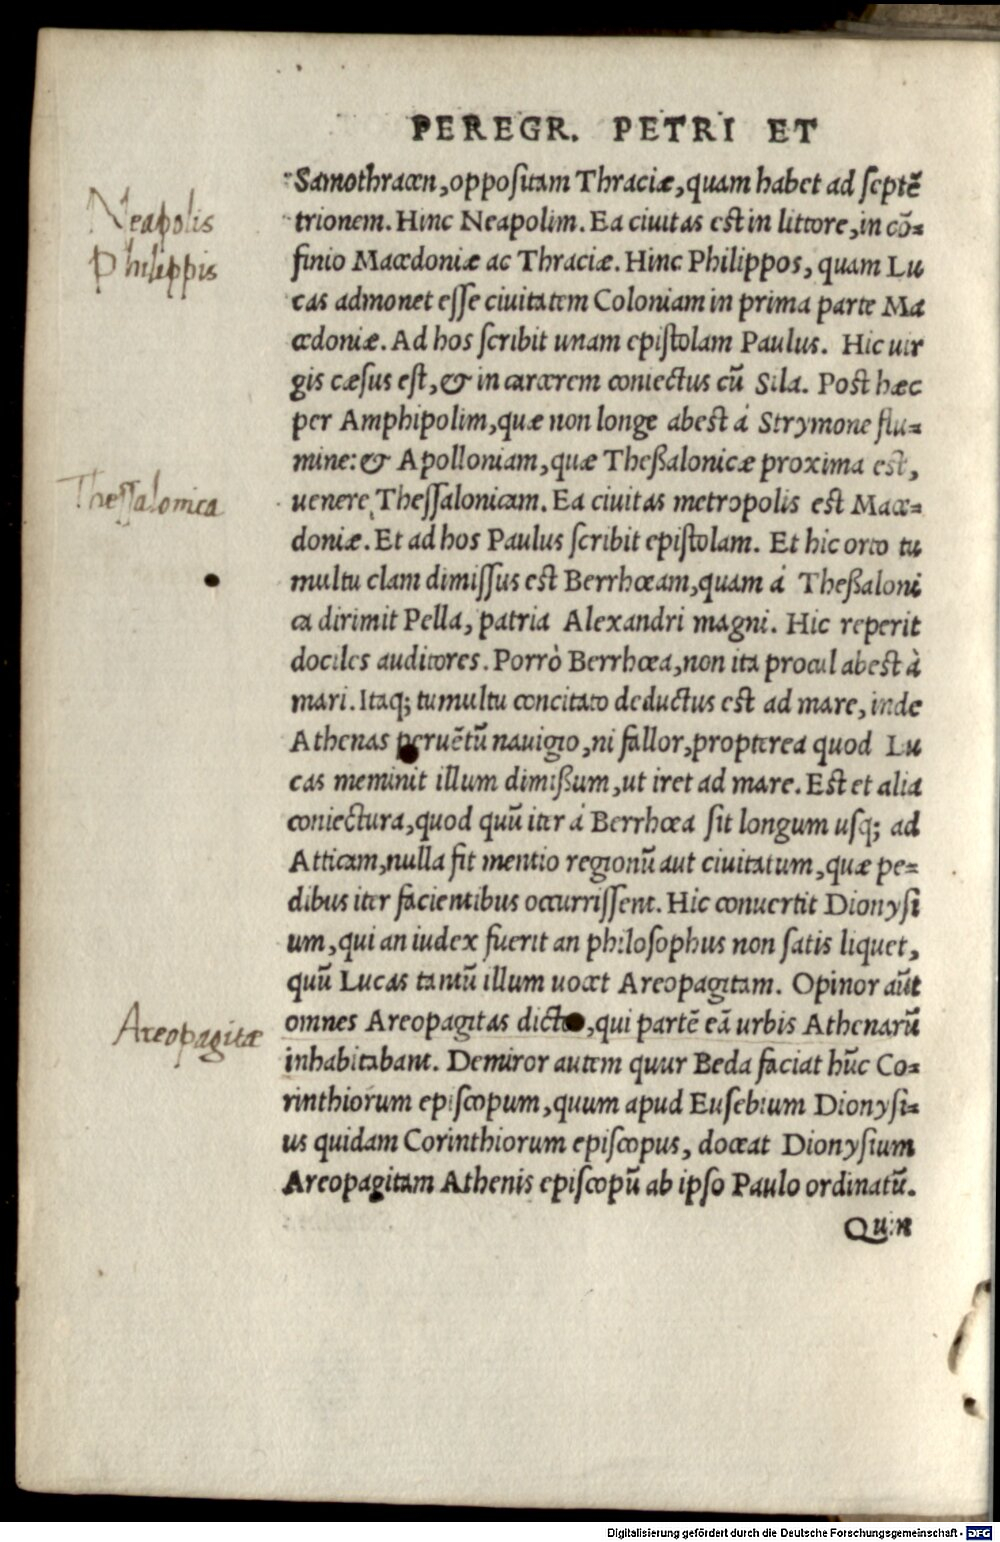 PEREGR. PETRI ET
Samothracen, oppositam Thraciæ, quam habet ad septē
Neapolis
trionem. Hinc Neapolim. Ea ciuitas est in littore, in cō=
Philippis
finio Macedoniæ ac Thraciæ. Hinc Philippos, quam Lu
cas admonet esse ciuitatem Coloniam in prima parte Ma
cedoniæ. Ad hos scribit unam epistolam Paulus. Hic uir
gis cæsus est, & in carcerem coniectus cū Sila. Post hæc
per Amphipolim, quæ non longe abest á Strymone flu=
mine: & Apolloniam, quæ Theßalonicæ proxima est,
Thessalonica
uenere Thessalonicam. Ea ciuitas metropolis est Mace=
doniæ. Et ad hos Paulus scribit epistolam. Et hic orto tu
multu clam dimissus est Berrhœam, quam á Theßaloni
ca dirimit Pella, patria Alexandri magni. Hic reperit
dociles auditores. Porrò Berrhœa, non ita procul abest à
mari. Itaq; tumultu concitato deductus est ad mare, inde
Athenas peruētū nauigio, ni fallor, propterea quod Lu
cas meminit illum dimißum, ut iret ad mare. Est et alia
coniectura, quod quū iter á Berrhœa sit longum usq; ad
Atticam, nulla fit mentio regionū aut ciuitatum, quæ pe=
dibus iter facientibus occurrissent. Hic conuertit Dionysi
um, qui an iudex fuerit an philosophus non satis liquet,
quū Lucas tantū illum uocet Areopagitam. Opinor aūt
Areopagitæ
omnes Areopagitas dictos, qui partē eā urbis Athenarū
inhabitabant. Demiror autem quur Beda faciat hūc Co=
rinthiorum episcopum, quum apud Eusebium Dionysi=
us quidam Corinthiorum episcopus, doceat Dionysium
Areopagitam Athenis episcopū ab ipso Paulo ordinatū.
Quin
Digitalisierung gefördert durch die Deutsche Forschungsgemeinschaft - DFG